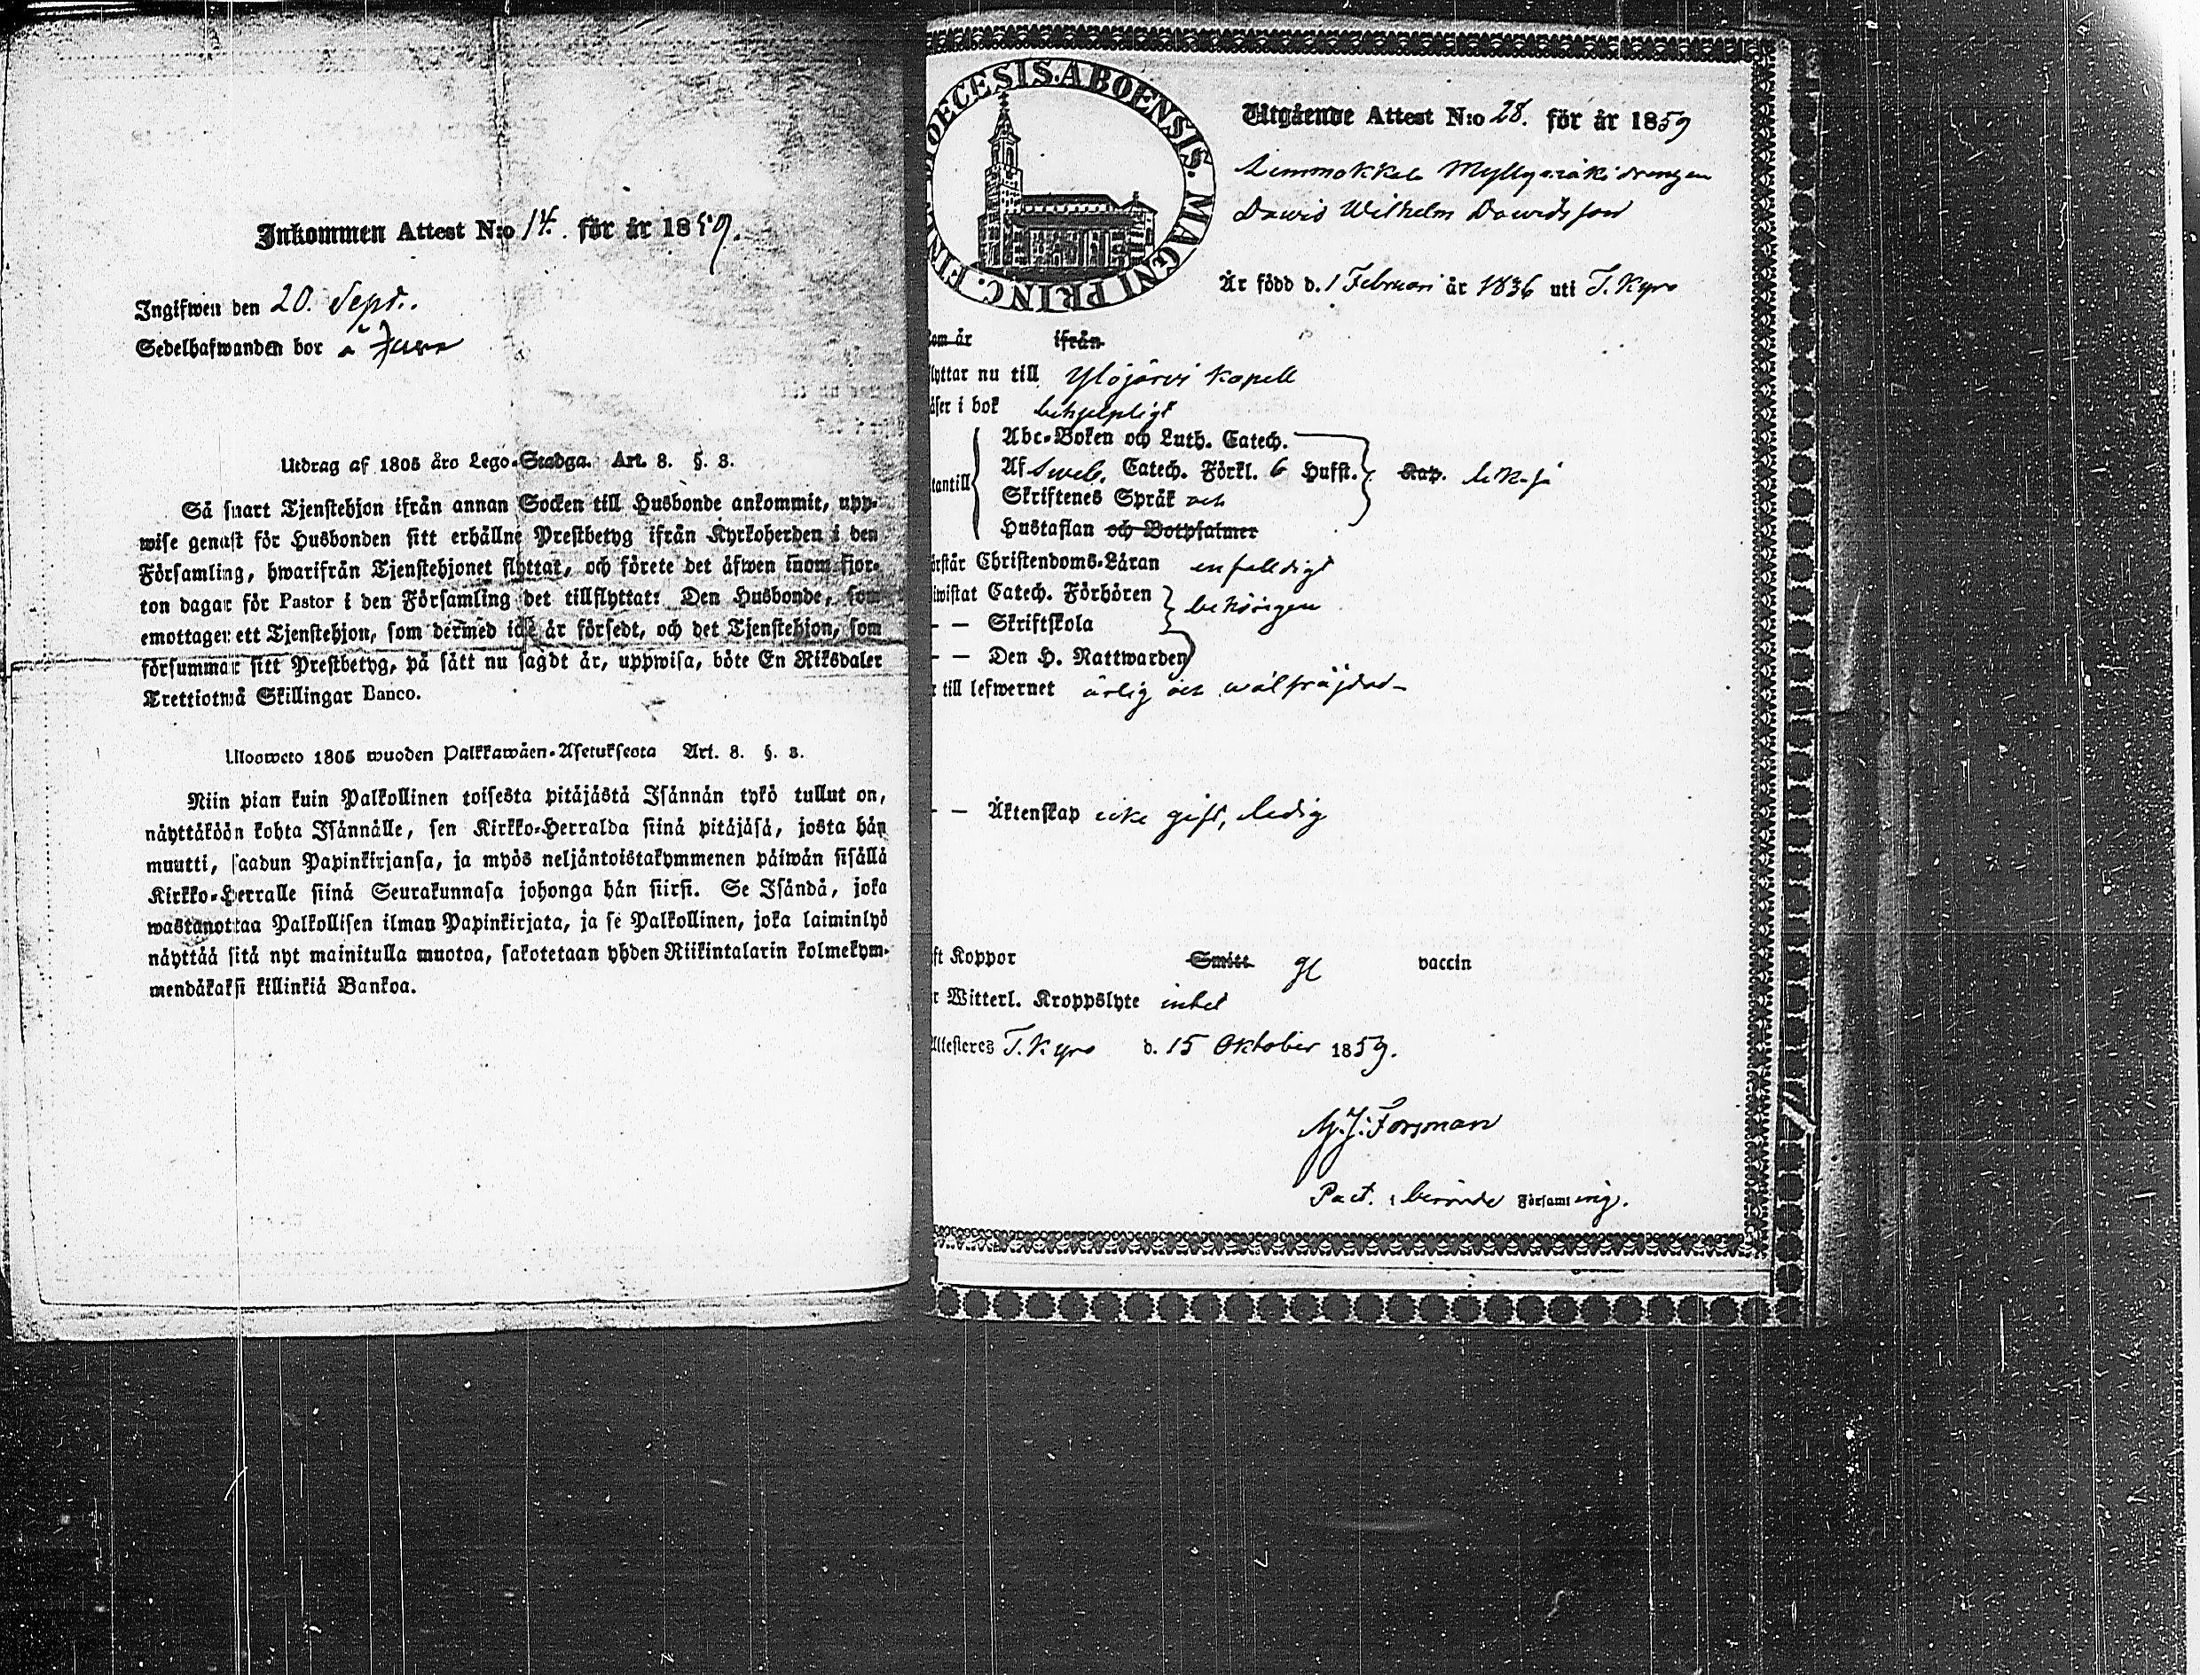 Inkommen Attest N:o 14. för år 1859.
Ingifwen den 20. Sept.
Sedelhafwanden bor å
Utdrag af 1805 åro Lego-Stadga. Art. 8. §. 3.
Så snart Tjenstehjon ifrån annan Socken till Husbonde ankommit, upp-
wise genast för Husbonden sitt erhållne Prestbetyg ifrån Kyrkoherden i den
Församling, hwarifrån Tjenstehjonet flyttat, och förete det äfwen inom fjor-
ton dagar för Pastor i den Församling det tillflyttat: Den Husbonde, som
emottager ett Tjenstehjon, som dermed icke är försedt, och det Tjenstehjon, som
försummar sitt Prestbetyg, på sätt nu sagdt är, uppwisa, böte En Riksdaler
Trettiotwå Skillingar Banco.
Uloosweto 1805 wuoden Palkkawäen-Asetuksesta Art. 8. §. 3.
Niin pian kuin Palkollinen toisesta pitäjästä Isännän tykö tullut on,
näyttäköön kohta Isännälle, sen Kirkko-Herralda siinä pitäjäsä, josta hän
muutti, saadun Papinkirjansa, ja myös neljäntoistakymmenen päiwän sisällä
Kirkko-Herralle siinä Seurakunnasa johonga hän siirsi. Se Isändä, joka
wastanottaa Palkollisen ilman Papinkirjata, ja se Palkollinen, joka laiminlyö
näyttää sitä nyt mainitulla muotoa, sakotetaan yhden Riikintalarin kolmekym-
mendäkaksi killinkiä Bankoa.
DIOECESIS. ABOENSIS. MAGNI PRINC. FINL.
Utgående Attest N:o 28. för år 1859
Myllymäki drengen
Dawid Wilhelm Dawidsson
Är född d. 1 Februari år 1836 uti T. Kyro
om år ifrån
lyttar nu till Ylöjärvi Kapell
äser i bok behjelpligt
Abc-Boken och Luth. Catech.
Af Sweb. Catech. Förkl. 6 Hufst. Kap. likaså
tantill
Skriftenes Språk och
Hustaflan och Botpsalmer
örstår Christendoms-Läran enfalldigt
iwistat Catech. Förhören behörigen
— — Skriftskola
— — Den H. Nattwarden
r till lefwernet ärlig och wälfräjdad
— — Äktenskap icke gift, ledig
ft Koppor Smitt gl vaccin
r Witterl. Kroppslyte intet
Attesteres T. Kyro d. 15 Oktober 1859.
M. J. Forsman
Past. i berörde Församling.